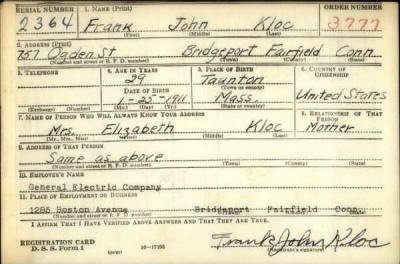 SERIAL NUMBER 1. NAME (Print) ORDER NUMBER
2364 Frank John Kloc 3777
(First) (Middle) (Last)
2. ADDRESS (Print)
757 Ogden St Bridgeport Fairfield Conn.
(Number and street or R. F. D. number) (Town) (County) (State)
3. TELEPHONE 4. AGE IN YEARS 5. PLACE OF BIRTH 6. COUNTRY OF CITIZENSHIP
29 Taunton
DATE OF BIRTH (Town or county)
-25-1911 Mass. United States
(Exchange) (Number) (Mo.) (Day) (Yr.) (State or country)
7. NAME OF PERSON WHO WILL ALWAYS KNOW YOUR ADDRESS 8. RELATIONSHIP OF THAT PERSON
Mrs. Elizabeth Kloc Mother
(Mr., Mrs., Miss) (First) (Middle) (Last)
9. ADDRESS OF THAT PERSON
Same as above
(Number and street or R. F. D. number) (Town) (County) (State)
10. EMPLOYER'S NAME
General Electric Company
11. PLACE OF EMPLOYMENT OR BUSINESS
1285 Boston Avenue Bridgeport Fairfield Conn.
(Number and street or R. F. D. number) (Town) (County) (State)
I AFFIRM THAT I HAVE VERIFIED ABOVE ANSWERS AND THAT THEY ARE TRUE.
REGISTRATION CARD
D. S. S. Form 1 (over) 16-17105 Frank John Kloc
(Registrant's signature)